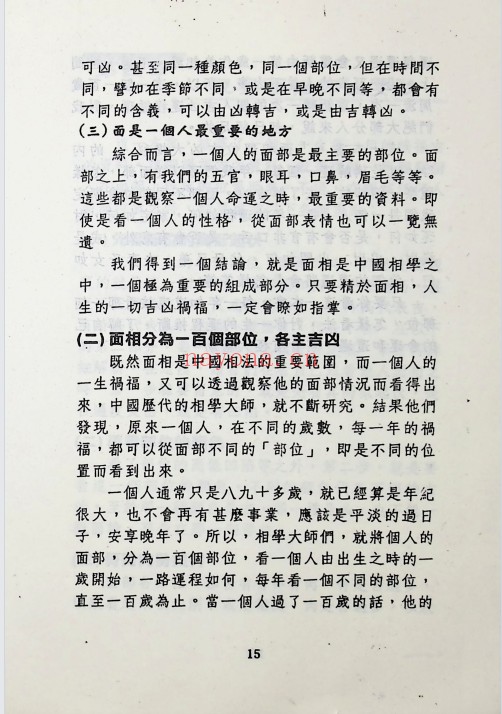 可凶。甚至同一種顏色，同一個部位，但在時間不
同，譬如在季節不同，或是在早晚不同等，都會有
不同的含義，可以由凶轉吉，或是由吉轉凶。
(三)面是一個人最重要的地方
綜合而言，一個人的面部是最主要的部位。面
部之上，有我們的五官，眼耳，口鼻，眉毛等等。
這些都是觀察一個人命運之時，最重要的資料。即
使是看一個人的性格，從面部表情也可以一覽無
遺。
我們得到一個結論，就是面相是中國相學之
中，一個極為重要的組成部分。只要精於面相，人
生的一切吉凶禍福，一定會瞭如指掌。
(二)面相分為一百個部位，各主吉凶
既然面相是中國相法的重要範圍，而一個人的
一生禍福，又可以透過觀察他的面部情況而看得出
來，中國歷代的相學大師，就不斷研究。結果他們
發現，原來一個人，在不同的歲數，每一年的禍
福，都可以從面部不同的「部位」，即是不同的位
置而看到出來。
一個人通常只是八九十多歲，就已經算是年紀
很大，也不會再有甚麼事業，應該是平淡的過日
子，安享晚年了。所以，相學大師們，就將個人的
面部，分為一百個部位，看一個人由出生之時的一
歲開始，一路運程如何，每年看一個不同的部位，
直至一百歲為止。當一個人過了一百歲的話，他的
15